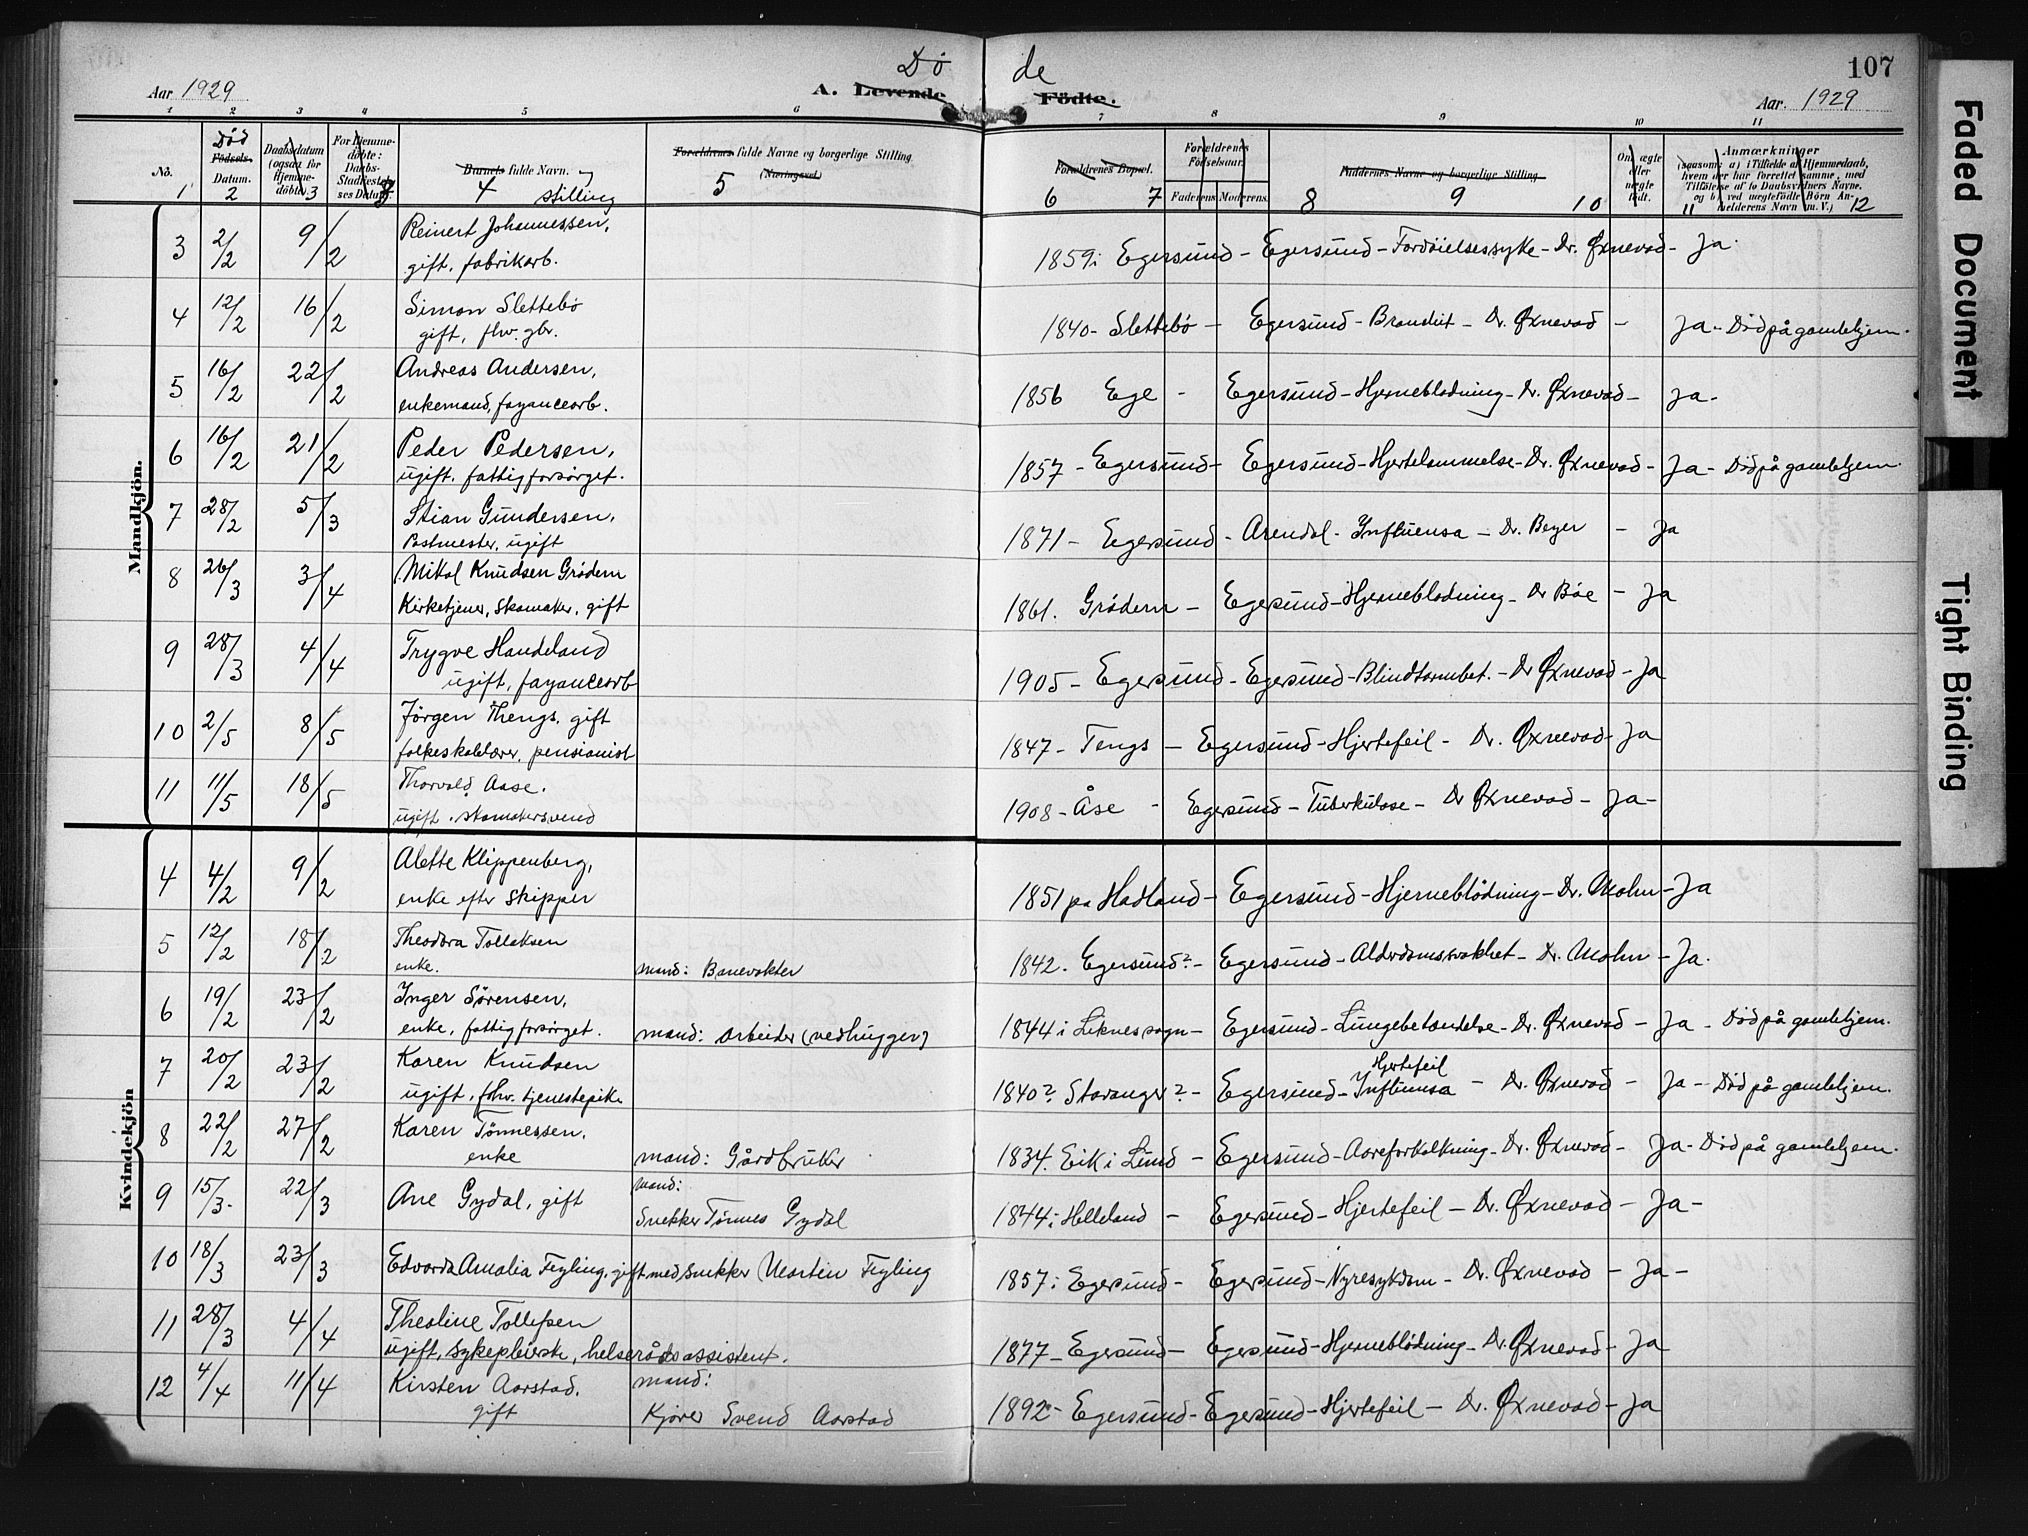 Aar 1929
Dø
A. Levende
de
Födte.
107
Aar. 1929
1 2 3 4 5 6 7 8 9 10 11
No. 1
Død
Födsels-
Datum. 2
Daabsdatum
(ogsaa for
Hjemme-
döbte). 3
For Hjemme-
döbte:
Daabs-
Stadfæstel-
ses Datum.
Barnets fulde Navn. 4 stilling
Forældrenes fulde Navne og borgerlige Stilling
(Næringsvei) 5
Forældrenes Bopæl. 6 7
Forældrenes
Födselsaar.
Faderens Moderens.
Faddernes Navne og borgerlige Stilling 8 9 10
Om ægte
eller
uægte
födt.
Anmærkninger
(saasom: a) i Tilfælde af Hjemmedaab,
hvem der har forrettet samme, med
Tilföielse af to Daabsvidners Navne,
og b) ved uægtefödte Börn An-
melderens Navn m. V.) 11 12
Mandkjön.
3 2/2 9/2 Reinert Johannessen, gift, fabrikarb. 1859 i Egersund - Egersund - Fordøielsessyke - Dr. Øxnevad - Ja.
4 12/2 16/2 Simon Slettebø gift, fhv. gbr. 1840 - Slettebø - Egersund - Brandsit - Dr. Øxnevad - Ja - Død på gamlehjem.
5 16/2 22/2 Andreas Andersen, enkemand, fayancearb. 1856 Ege - Egersund - Hjerneblødning - Dr. Øxnevad - Ja.
6 16/2 21/2 Peder Pedersen, ugift, fattigforsørget. 1857 - Egersund - Egersund - Hjertelammelse - Dr. Øxnevad - Ja - Død på gamlehjem.
7 28/2 5/3 Stian Gundersen, Postmester, ugift 1871 - Egersund - Arendal - Influensa - Dr. Beyer - Ja
8 26/3 3/4 Mikal Knudsen Grødem Kirketjener, skomaker, gift 1861. Grødem - Egersund - Hjerneblødning - Dr Bøe - Ja
9 28/3 4/4 Trygve Handeland ugift, fayancearb 1905 - Egersund - Egersund - Blindtarmbet. - Dr Øxnevad - Ja
10 2/5 8/5 Jörgen Thengs, gift folkeskolelærer, pensionist 1847 - Tengs - Egersund - Hjertefeil - Dr. Øxnevad - Ja
11 11/5 18/5 Thorvald Aase. ugift, skomakersvend 1908 - Åse - Egersund - Tuberkulose - Dr Øxnevad - Ja -
Kvindekjön
4 4/2 9/2 Alette Klippenberg, enke efter skipper 1851 på Hadland - Egersund - Hjerneblødning - Dr. Mohn - Ja
5 12/2 18/2 Theodora Tollaksen enke. mand: Banevokter 1842. Egersund? - Egersund - Alderdomssvakhet - Dr. Mohn - Ja.
6 19/2 23/2 Inger Sørensen, enke, fattigforsørget. mand: arbeider (vedhugger) 1844 i Liknes sogn - Egersund - Lungebetændelse - Dr. Øxnevad - Ja - Død på gamlehjem.
7 20/2 23/2 Karen Knudsen ugift, fhv. tjenestepike 1840? Stavanger? - Egersund - Hjertefeil Influensa - Dr. Øxnevad - Ja - Død på gamlehjem.
8 22/2 27/2 Karen Tønnessen, enke mand: Gårdbruker 1834. Eik i Lund - Egersund - Aareforkalkning - Dr. Øxnevad - Ja - Død på gamlehjem.
9 15/3 22/3 Ane Gydal, gift mand: Snekker Tønnes Gydal 1844 i Helleland - Egersund - Hjertefeil - Dr. Øxnevad - Ja -
10 18/3 23/3 Edvarda Amalia Fegling, gift med snekker Martin Fegling 1857 i Egersund - Egersund - Nyresykdom - Dr. Øxnevad - Ja -
11 28/3 4/4 Theoline Tollefsen ugift, sykepleierske, helserådsassistent. 1877 - Egersund - Egersund - Hjerneblødning - Dr. Øxnevad - Ja
12 4/4 11/4 Kirsten Aarstad, gift mand: Kjører Svend Aarstad 1892 - Egersund - Egersund - Hjertefeil - Dr. Øxnevad - Ja
Faded Document
Tight Binding